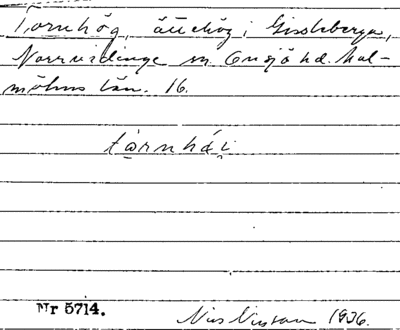 Tornhög, ättehög i Gissleberga,
Norrvidinge sn. Onsjö hd. Mal-
möhus län. 16.
tạrnhɑ́i̯
Nr 5714.
Nils Nilsson 1936.